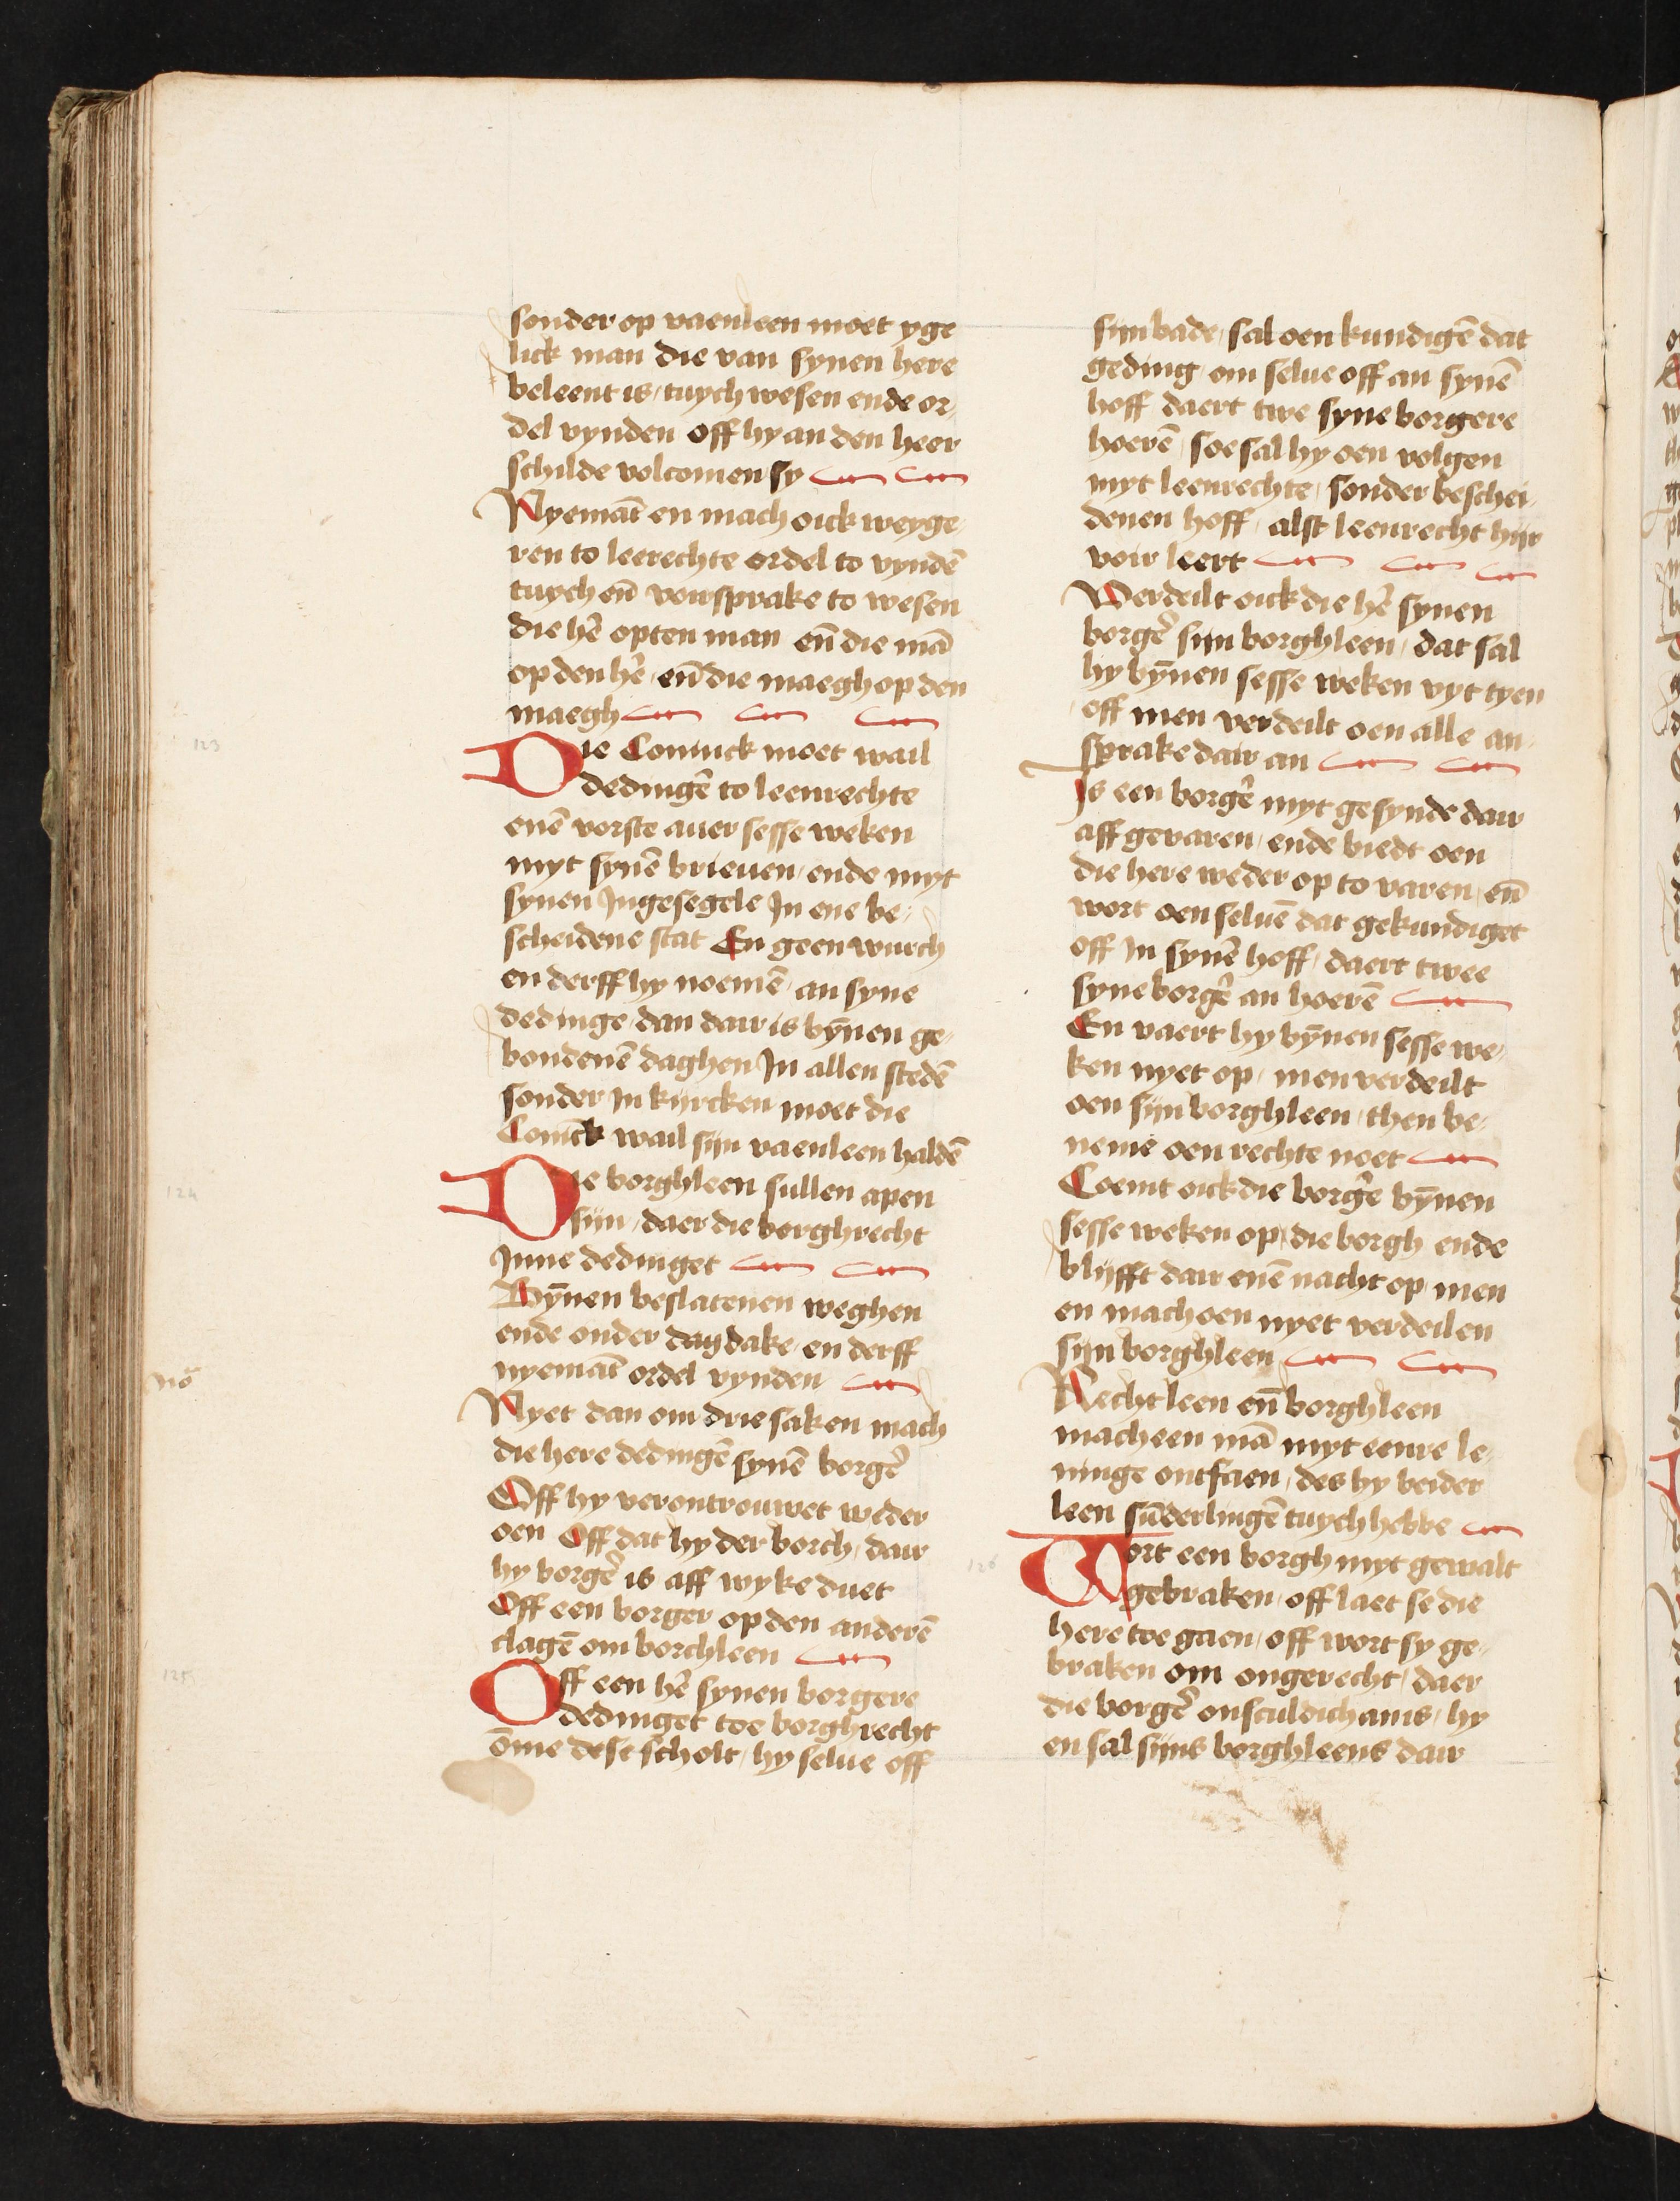 sonder op vaenleen moet yge
lick man die van synen here
beleent is / tuych wesen ende or-
del vynden off hy an den heer
schilde volcomen sy
Nyemāt en mach oick weyge-
ren to leerechte ordel to vyndē
tuych eñ voirsprake to wesen
die hẽ opten man eñ die mā
op den hẽ / eñ die maegh op den
maegh
123
Die Coninck moet wail
dedingē to leenrechte
enē vorste auer sesse weken
myt synē brieuen / ende myt
synen Ingesegele In ene be-
scheidene stat En geen wurch
en derff hy noemē an syne
dedinge / dan dair is bȳnen ge-
bondenē daghen In allen stedē
sonder In kyrcken moet die
Conīck wail sijn vaenleen haldē
124
Die borghleen sullen apen
sijn / daer die borghrecht
Inne dedinget
Bȳnen beslatenen weghen
ende onder dagdake / en derff
nyemāt ordel vynden
nō
Nyet dan om drie saken mach
die here dedingē synē borgẽ
Off hy verontrouwet weder
oen Off dat hy der borch / dair
hy borgẽ is aff wyke duet
Off een borger op den anderē
clagē om borchleen
125
Off een hẽ synen borgere
dedinget toe borghrecht
ōme dese scholt / hy selue off
sijn bade / sal oen kundigē dat
geding om selue off an synē
hoff daert twe syne borgere
hoerē / soe sal hy oen volgen
myt leenrechte / sonder beschei-
denen hoff / alst leenrecht hijr
voir leert
Verdeilt oick die hẽ synen
borgẽ sijn borghleen / dat sal
hy bȳnen sesse weken vyt tyen
off men verdeilt oen alle an-
sprake dair an
Is een borgẽ myt gesynde dair
aff gevaren / ende biedt oen
die here weder op to varen / eñ
wort oen seluē dat gekundiget
off In synē hoff / daert twee
syne borgẽ an hoerē
En vaert hy bȳnen sesse we-
ken nyet op / men verdeilt
oen sijn borghleen / then be-
neme oen rechte noet
Coemt oick die borgẽ bȳnen
sesse weken op / die borgh ende
blijfft dair enē nacht op / men
en mach oen nyet verdeilen
sijn borghleen
Recht leen eñ borghleen
mach een mā myt eenre le-
ninge ontfaen / des hy beider
leen sūderlingē tuych hebbe
126
Wort een borgh myt gewalt
gebraken / off laet se die
here toe gaen / off wort sy ge-
braken om ongerecht / daer
die borgẽ onsculdich an is / hy
en sal sijns borghleens dair